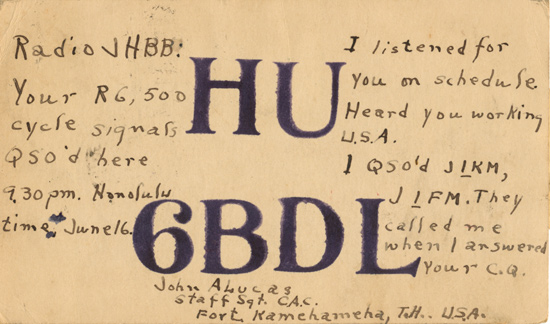 Radio JHBB:
Your R6, 500
cycle signals
QSO'd here
9.30 pm. Honolulu
time June 16.
HU
6BDL
I listened for
you on schedule
Heard you working
U.S.A.
I QSO'd J1KM,
J1FM. They
called me
when I answered
Your C.Q.
John A Lucas
Staff Sgt. C.A.C.
Fort Kamehameha, T.H.. U.S.A.